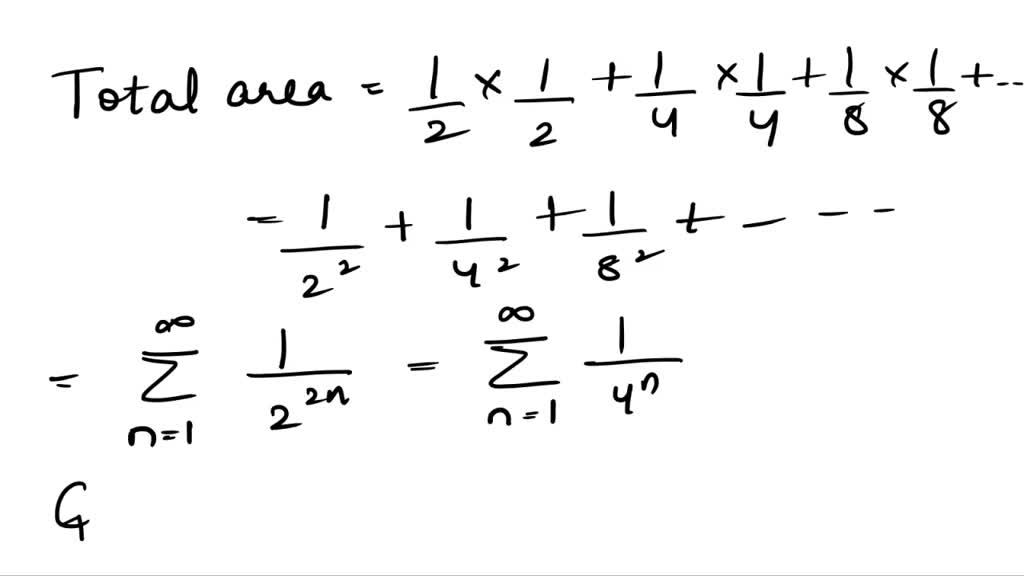 Total area = 1/2 × 1/2 + 1/4 × 1/4 + 1/8 × 1/8 + ...
= 1/2² + 1/4² + 1/8² + - - -
= ∞ Σ n=1 1/2²ⁿ = ∞ Σ n=1 1/4ⁿ
G